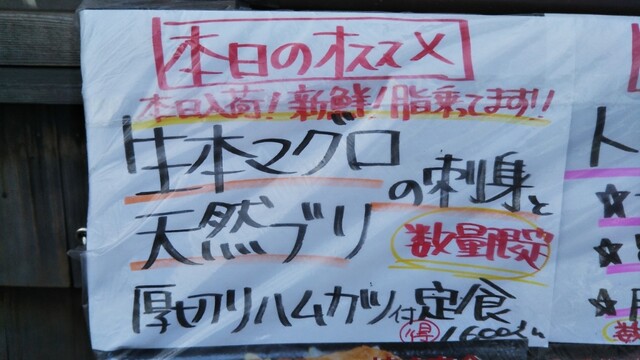 本日のオススメ
本日入荷！新鮮！脂乗ってます!!
生本マグロの刺身と
天然ブリ 数量限定
厚切りハムカツ付定食
得 1,600円
ト
★
★
★